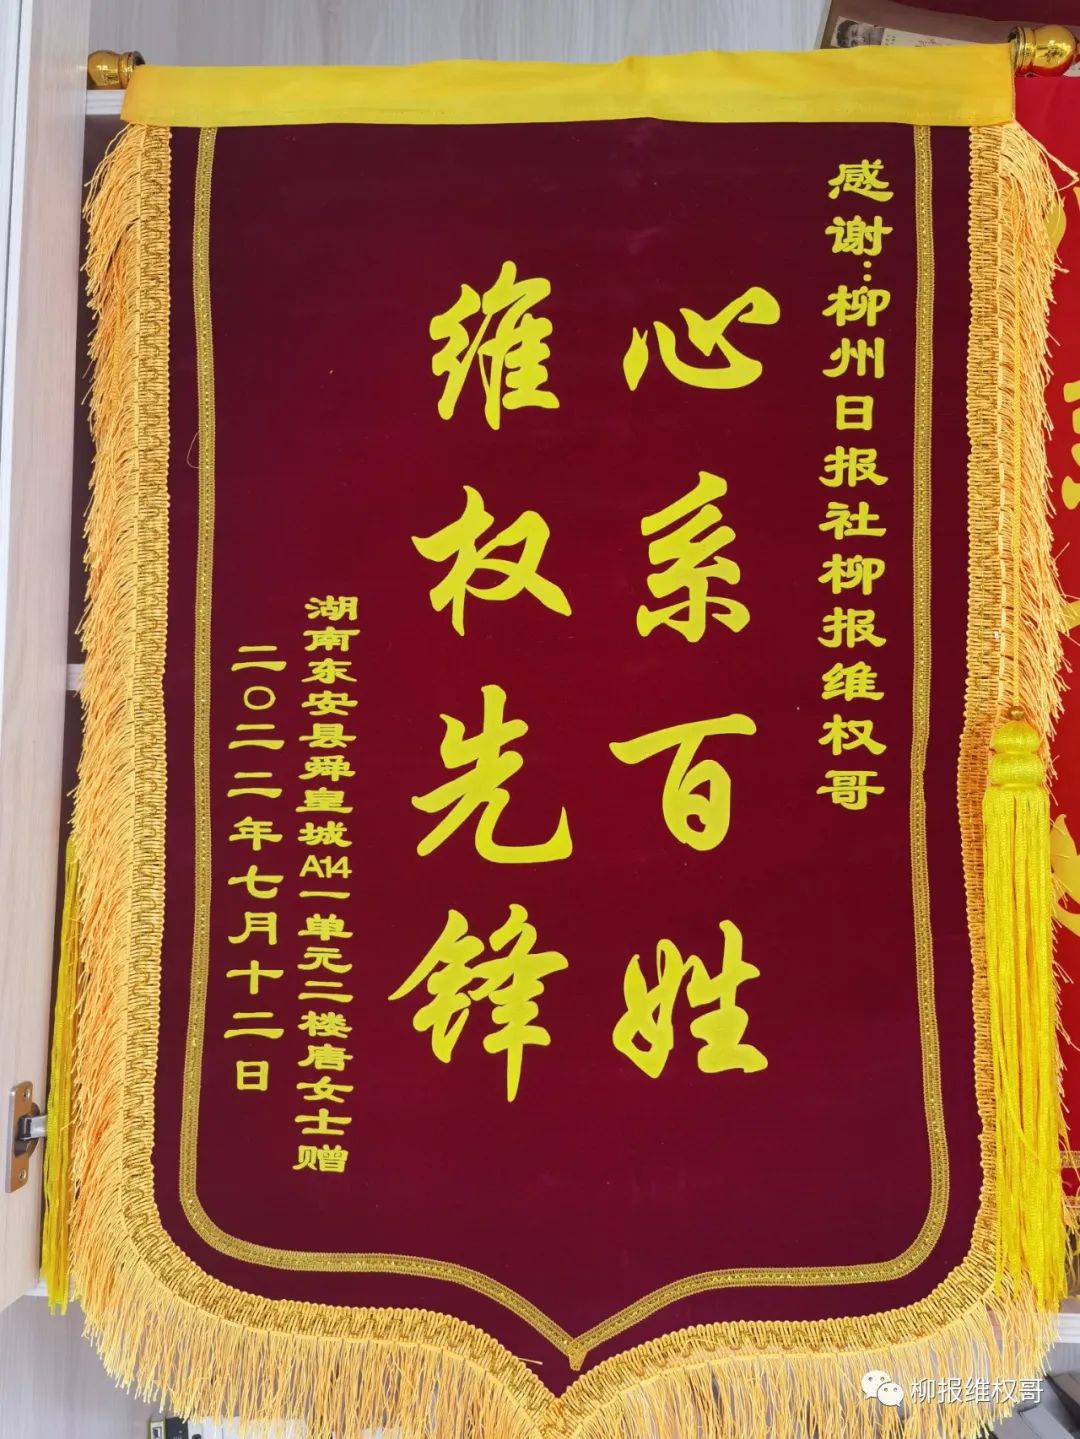 感谢：柳州日报社柳报维权哥
心系百姓
维权先锋
湖南东安县舜皇城A14一单元二楼唐女士赠
二〇二二年七月十二日
柳报维权哥